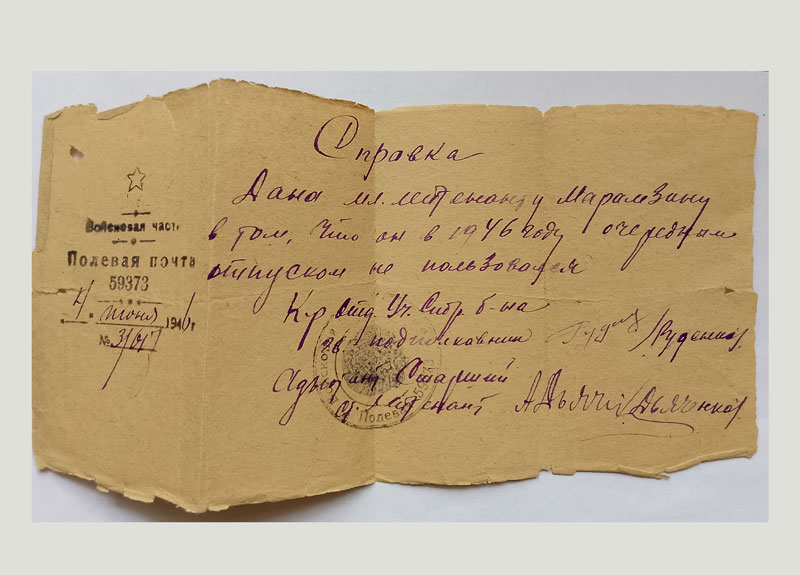 Войсковая часть
Полевая почта
59373
4. июня 1946 г
№ 3/017
Справка
Дана мл. лейтенанту Марамзину
в том, что он в 1946 году очередным
отпуском не пользовался
К-р отд. Уч. б-на
гв подполковник /Руденко/
Адъютант Старший
ст. Лейтенант /Дьяченко/
Полевая